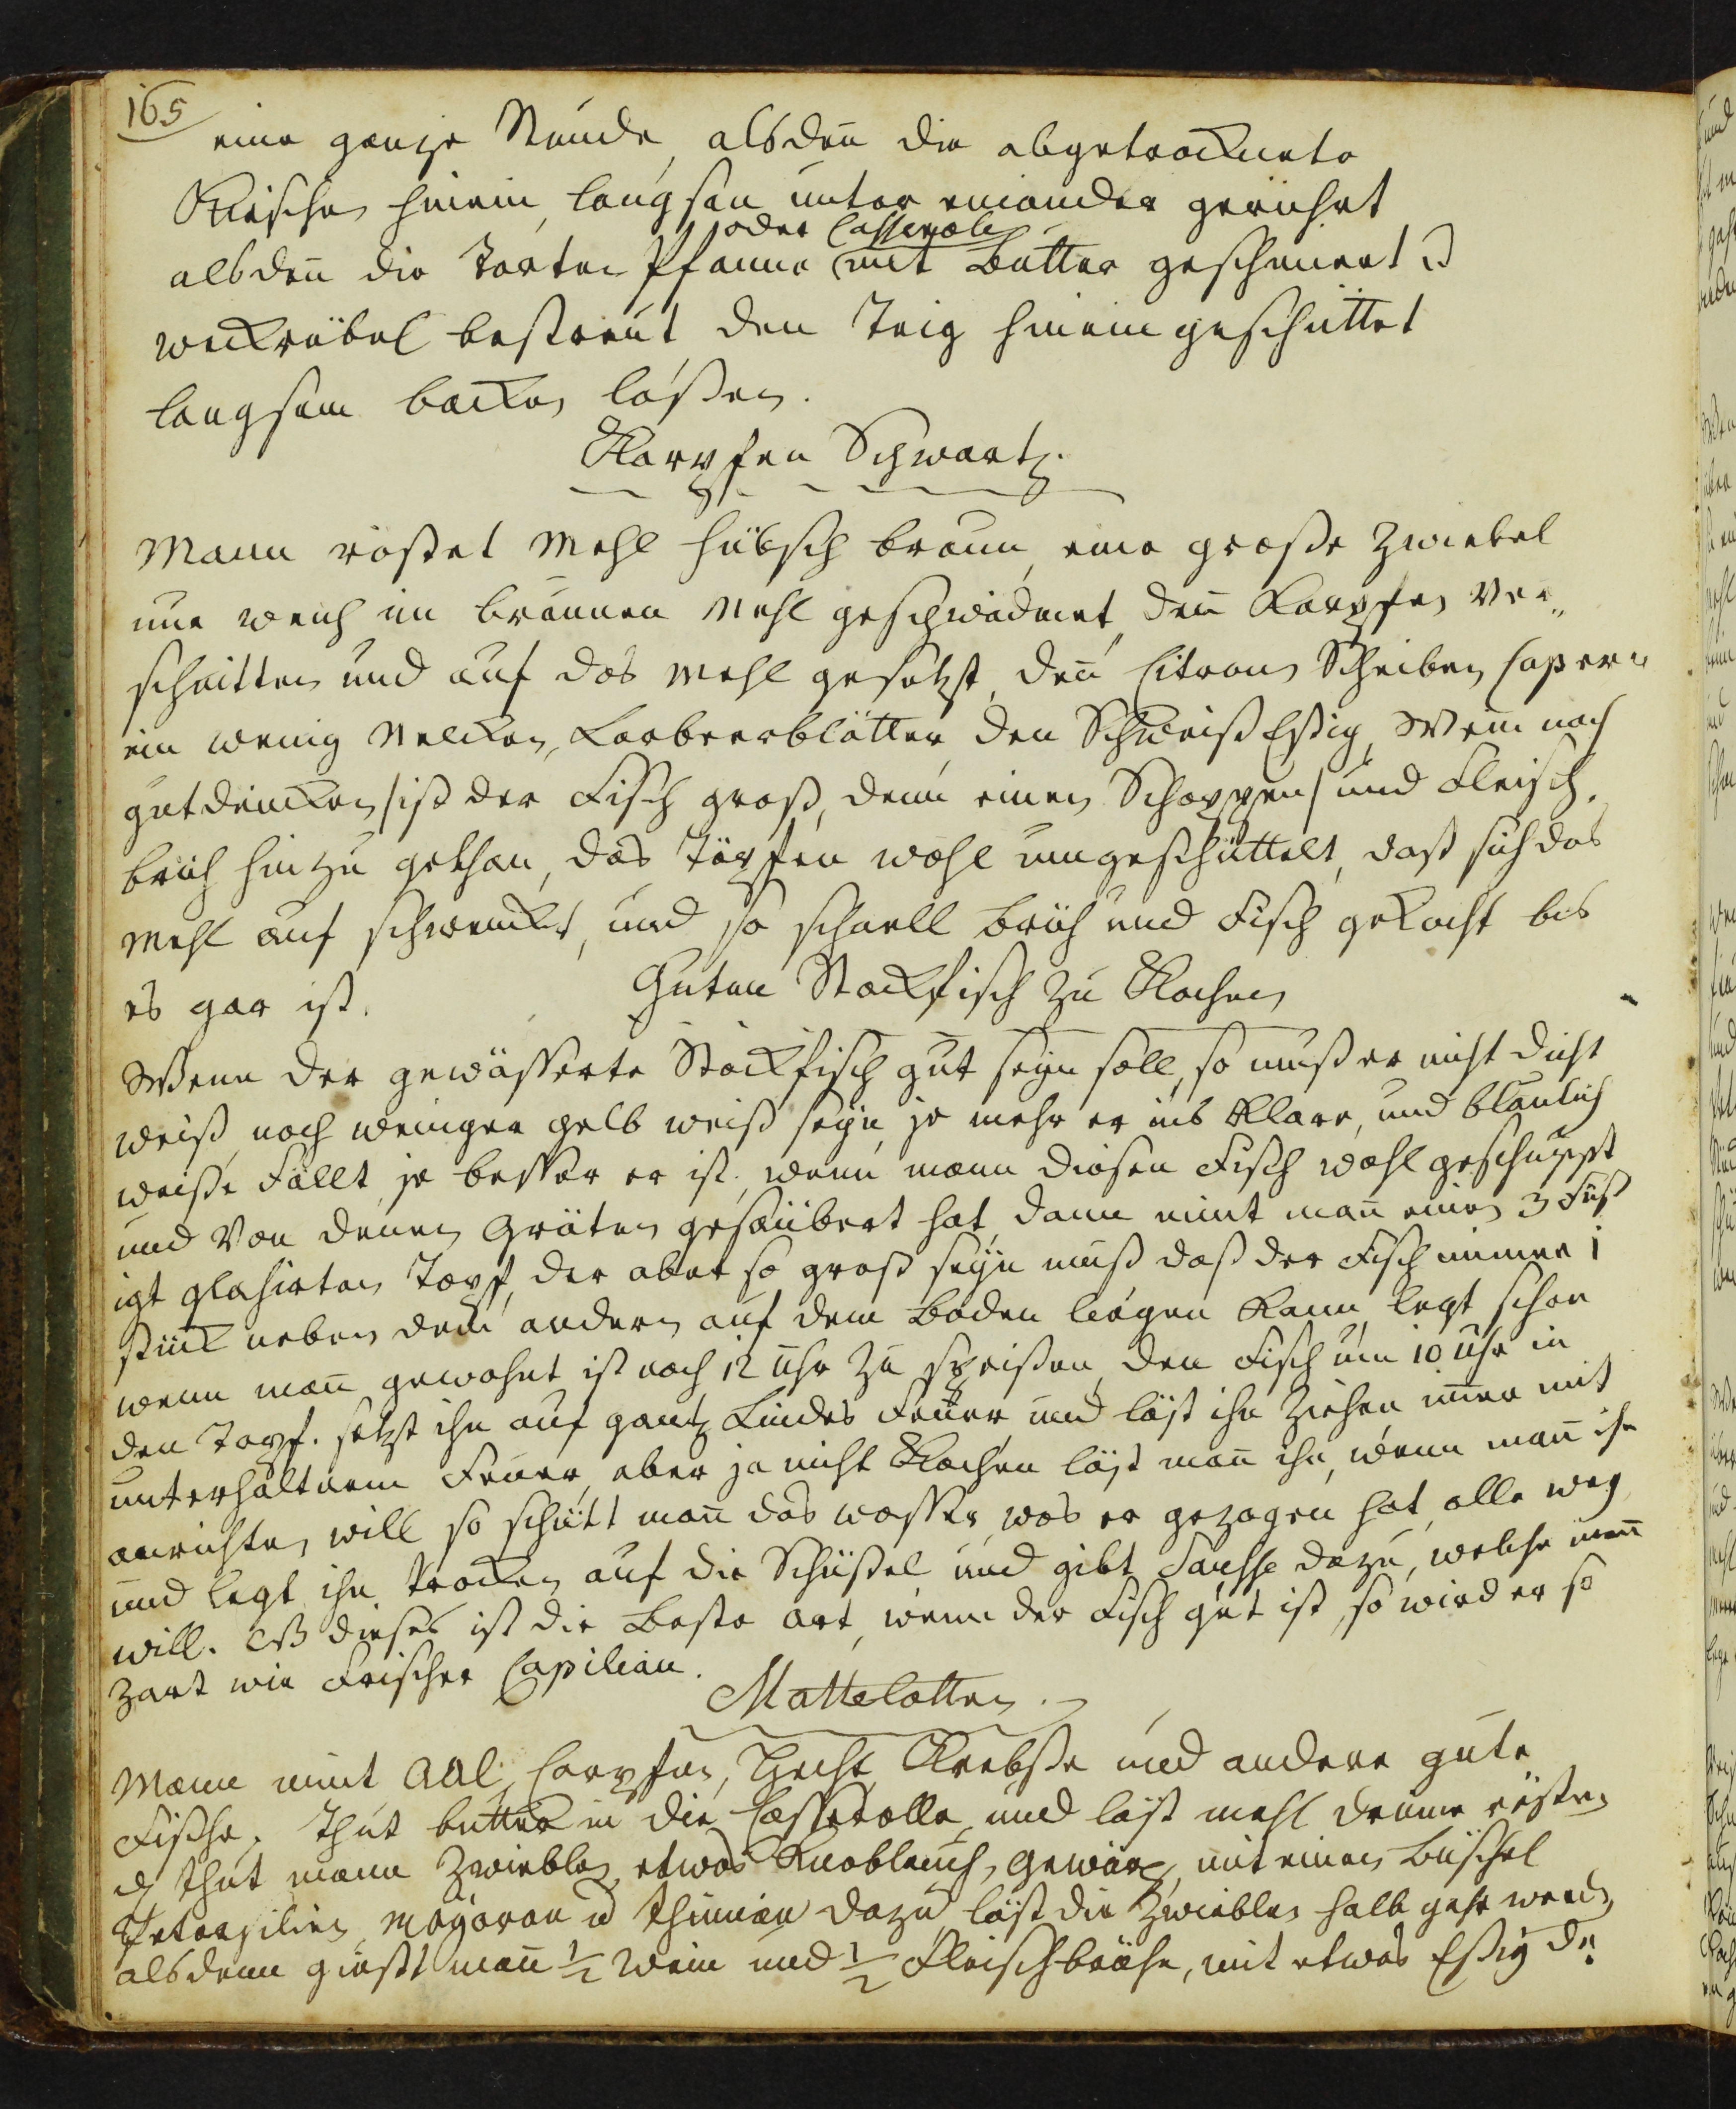 165
eine gantze Stunde, alsden̄ die abgetrocknete
Kirschen hinein, langsam unter einander gerührt
oder Casserole
alsden̄ die Torten Pfanne (mit Butter geschmiert u
weckriebel bestreut den Teig hinein geschüttet
langsam backen laßen.
Karpfen Schwartz.
Mann röstet Mehl hübsch braun, eine große Zwiebel
nun weich im braunen Mehl geschwidmet, den̄ Karpfen ver„
schnitten und auf das Mehl gesetzt, den̄ Citronen Scheiben Capern
ein wenig Nelcken, Lorbeerblätter, den Schweiß Eßig, Wein nach
gutdüncken /ist der Fisch groß, denn einen Schoppen/ und Fleisch„
brüh hinzu gethan, das Töpfen wohl umgeschüttelt, daß sich das
Mehl auf schwencket, und so schnell brüh und Fisch gekocht bis
es gar ist.
Guten Stockfisch zu Kochen
Wenn der gewässerte Stockfisch gut seyn soll, so muß er nicht dicht
weiß, noch weniger gelb weiß seyn, je mehr er ins Klare, und blaulich
weiße Fällt, je besser er ist, wenn mann diesen Fisch wohl geschuppt
und Von denen Gräten gesäubert hat, dann nimt man̄ einen 3 Fuß
igt glasirten Topf, der aber so groß seyn muß daß der Fisch immer 1
stück neben dem andern auf dem Boden liegen kann, legt schon
wenn man̄ gewohnt ist nach 12 Uhr zu speißen, den Fisch um 10 Uhr in
den Topf. setzt ihn auf gantz Lindes Feuer und läst ihn Ziehen im̄er mit
unterhaltnem Feuer, aber ja nicht Kochen läst man̄ ihn, wenn man̄ ihn
anrichten will so schütt man̄ das wasser, was er gezogen hat, alle weg
und legt ihn trocken auf die Schüßel und gibt Sausse dazu, welche man̄
will. dieses ist die Beste art, wenn der Fisch gut ist, so wird er so
Zart wie Frischer Capiliau.
Mattelotten.
Mann nimt Aal, Carpfen, Hecht, Krebße und andere gute
Fische, thut butter in die Casserolle, und läst mehl drinne rösten
thut mann Zwieblen, etwas Knoblauch, gewürz, mit einen Büschel
Petersilien, Mayoran u Thimian dazu, läst die Zwieblen halb gahr werden
alsdenn gießt man̄ 1/2 Wein und 1/2 Fleischbrühe, mit etwas Eßig